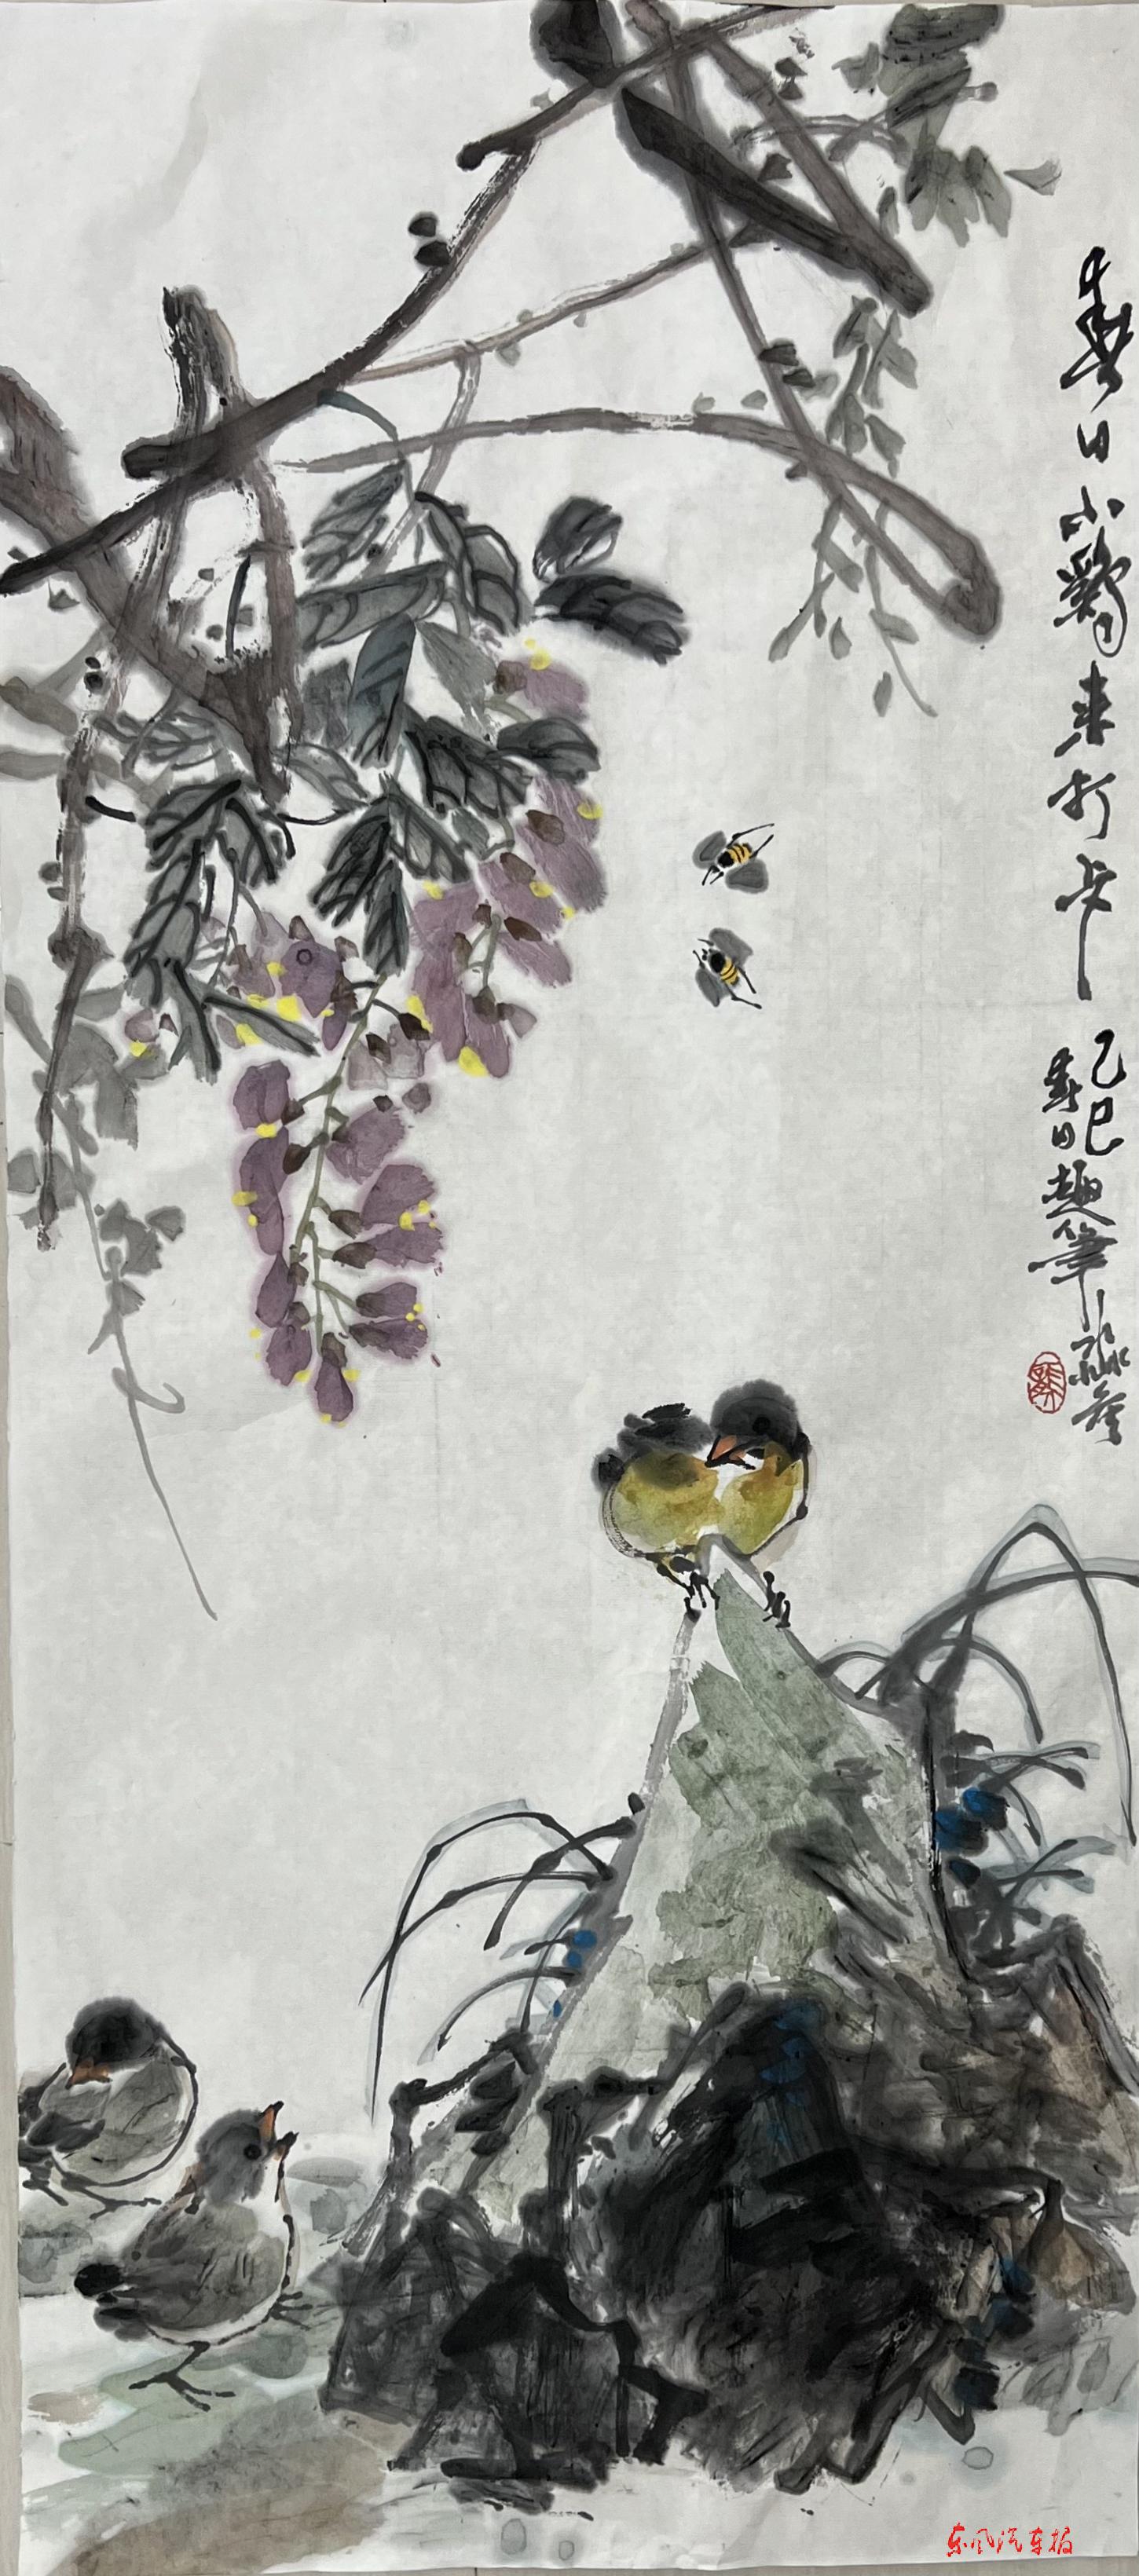 春日小鷄来打卡
乙巳
春日趣筆
东风汽车报